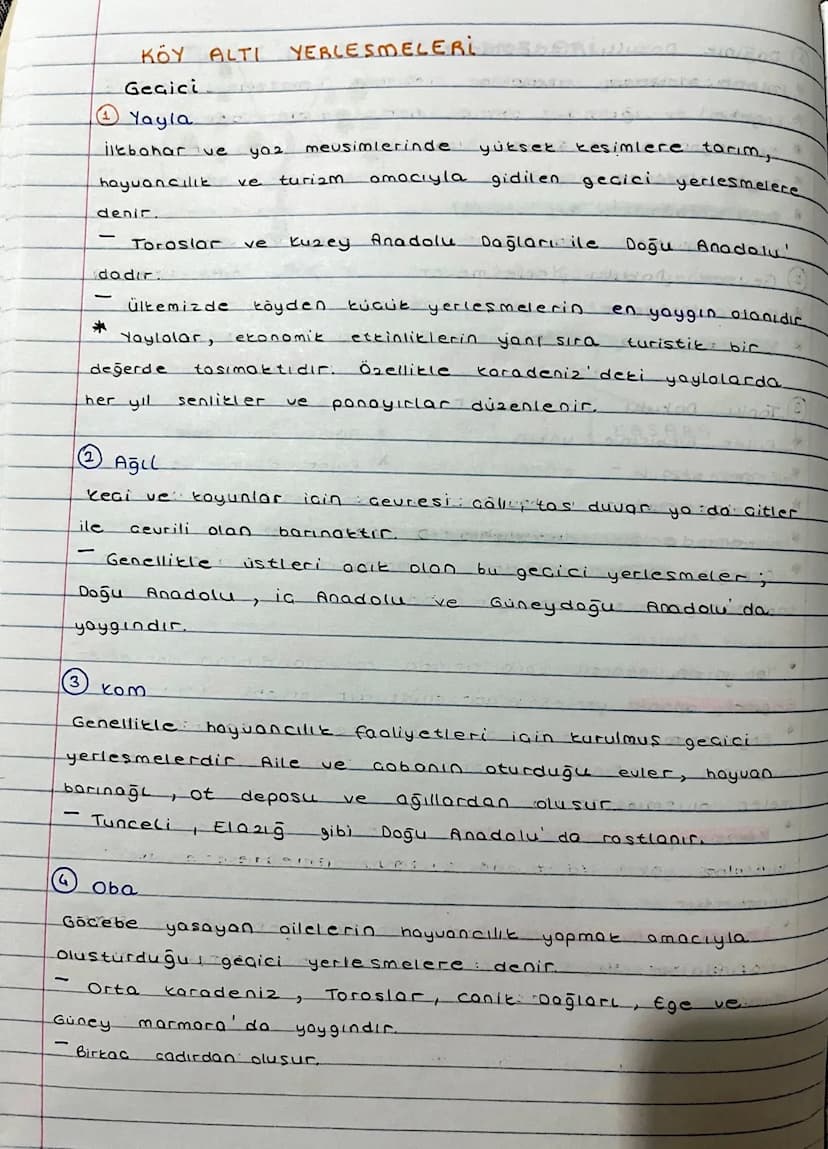 KÖY ALTI YERLEŞMELERİ
Geçici
① Yayla
İlkbahar ve yaz mevsimlerinde yüksek kesimlere tarım,
hayvancılık ve turizm amacıyla gidilen geçici yerleşmelere
denir.
- Toroslar ve Kuzey Anadolu Dağları ile Doğu Anadolu'
dadır.
- Ülkemizde köyden küçük yerleşmelerin en yaygın olanıdır
* Yaylalar, ekonomik etkinliklerin yanı sıra turistik bir
değerde taşımaktıdır. Özellikle Karadeniz'deki yaylalarda
her yıl şenlikler ve panayırlar düzenlenir.
② Ağıl
Keçi ve koyunlar için çevresi çalı, taş duvar ya da çitler
ile çevrili olan barınaktır.
- Genellikle üstleri açık olan bu geçici yerleşmeler;
Doğu Anadolu, iç Anadolu ve Güneydoğu Anadolu'da
yaygındır.
③ Kom
Genellikle hayvancılık faaliyetleri için kurulmuş geçici
yerleşmelerdir Aile ve çobanın oturduğu evler, hayvan
barınağı, ot deposu ve ağıllardan oluşur.
- Tunceli, Elazığ gibi Doğu Anadolu'da rastlanır.
④ Oba
Göçebe yaşayan ailelerin hayvancılık yapmak amacıyla
oluşturduğu geçici yerleşmelere denir.
- Orta Karadeniz, Toroslar, Canik Dağları, Ege ve
Güney marmara'da yaygındır.
- Birkaç çadırdan oluşur.